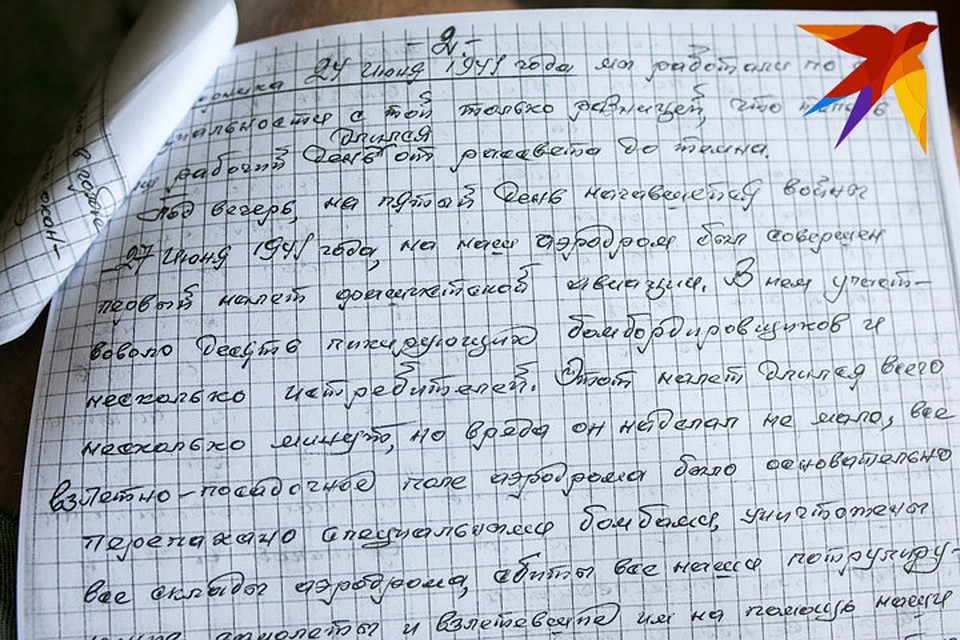 -2-
24 июня 1941 года мы работали по
с той только разницей, что теперь
длился
рабочий день от рассвета до темна.
Под вечер, на пятый день начавшейся войны
-27 июня 1941 года, на наш аэродром был совершен
первый налет фашистской авиации. В нем участ-
вовало десять пикирующих бомбардировщиков и
несколько истребителей. Этот налет длился всего
несколько минут, но вреда он наделал не мало, все
взлетно-посадочное поле аэродрома было основательно
перепахано специальными бомбами, уничтожены
все склады аэродрома, сбиты все наши потрулиру-
самолеты и взлетевшие им на помощь наши